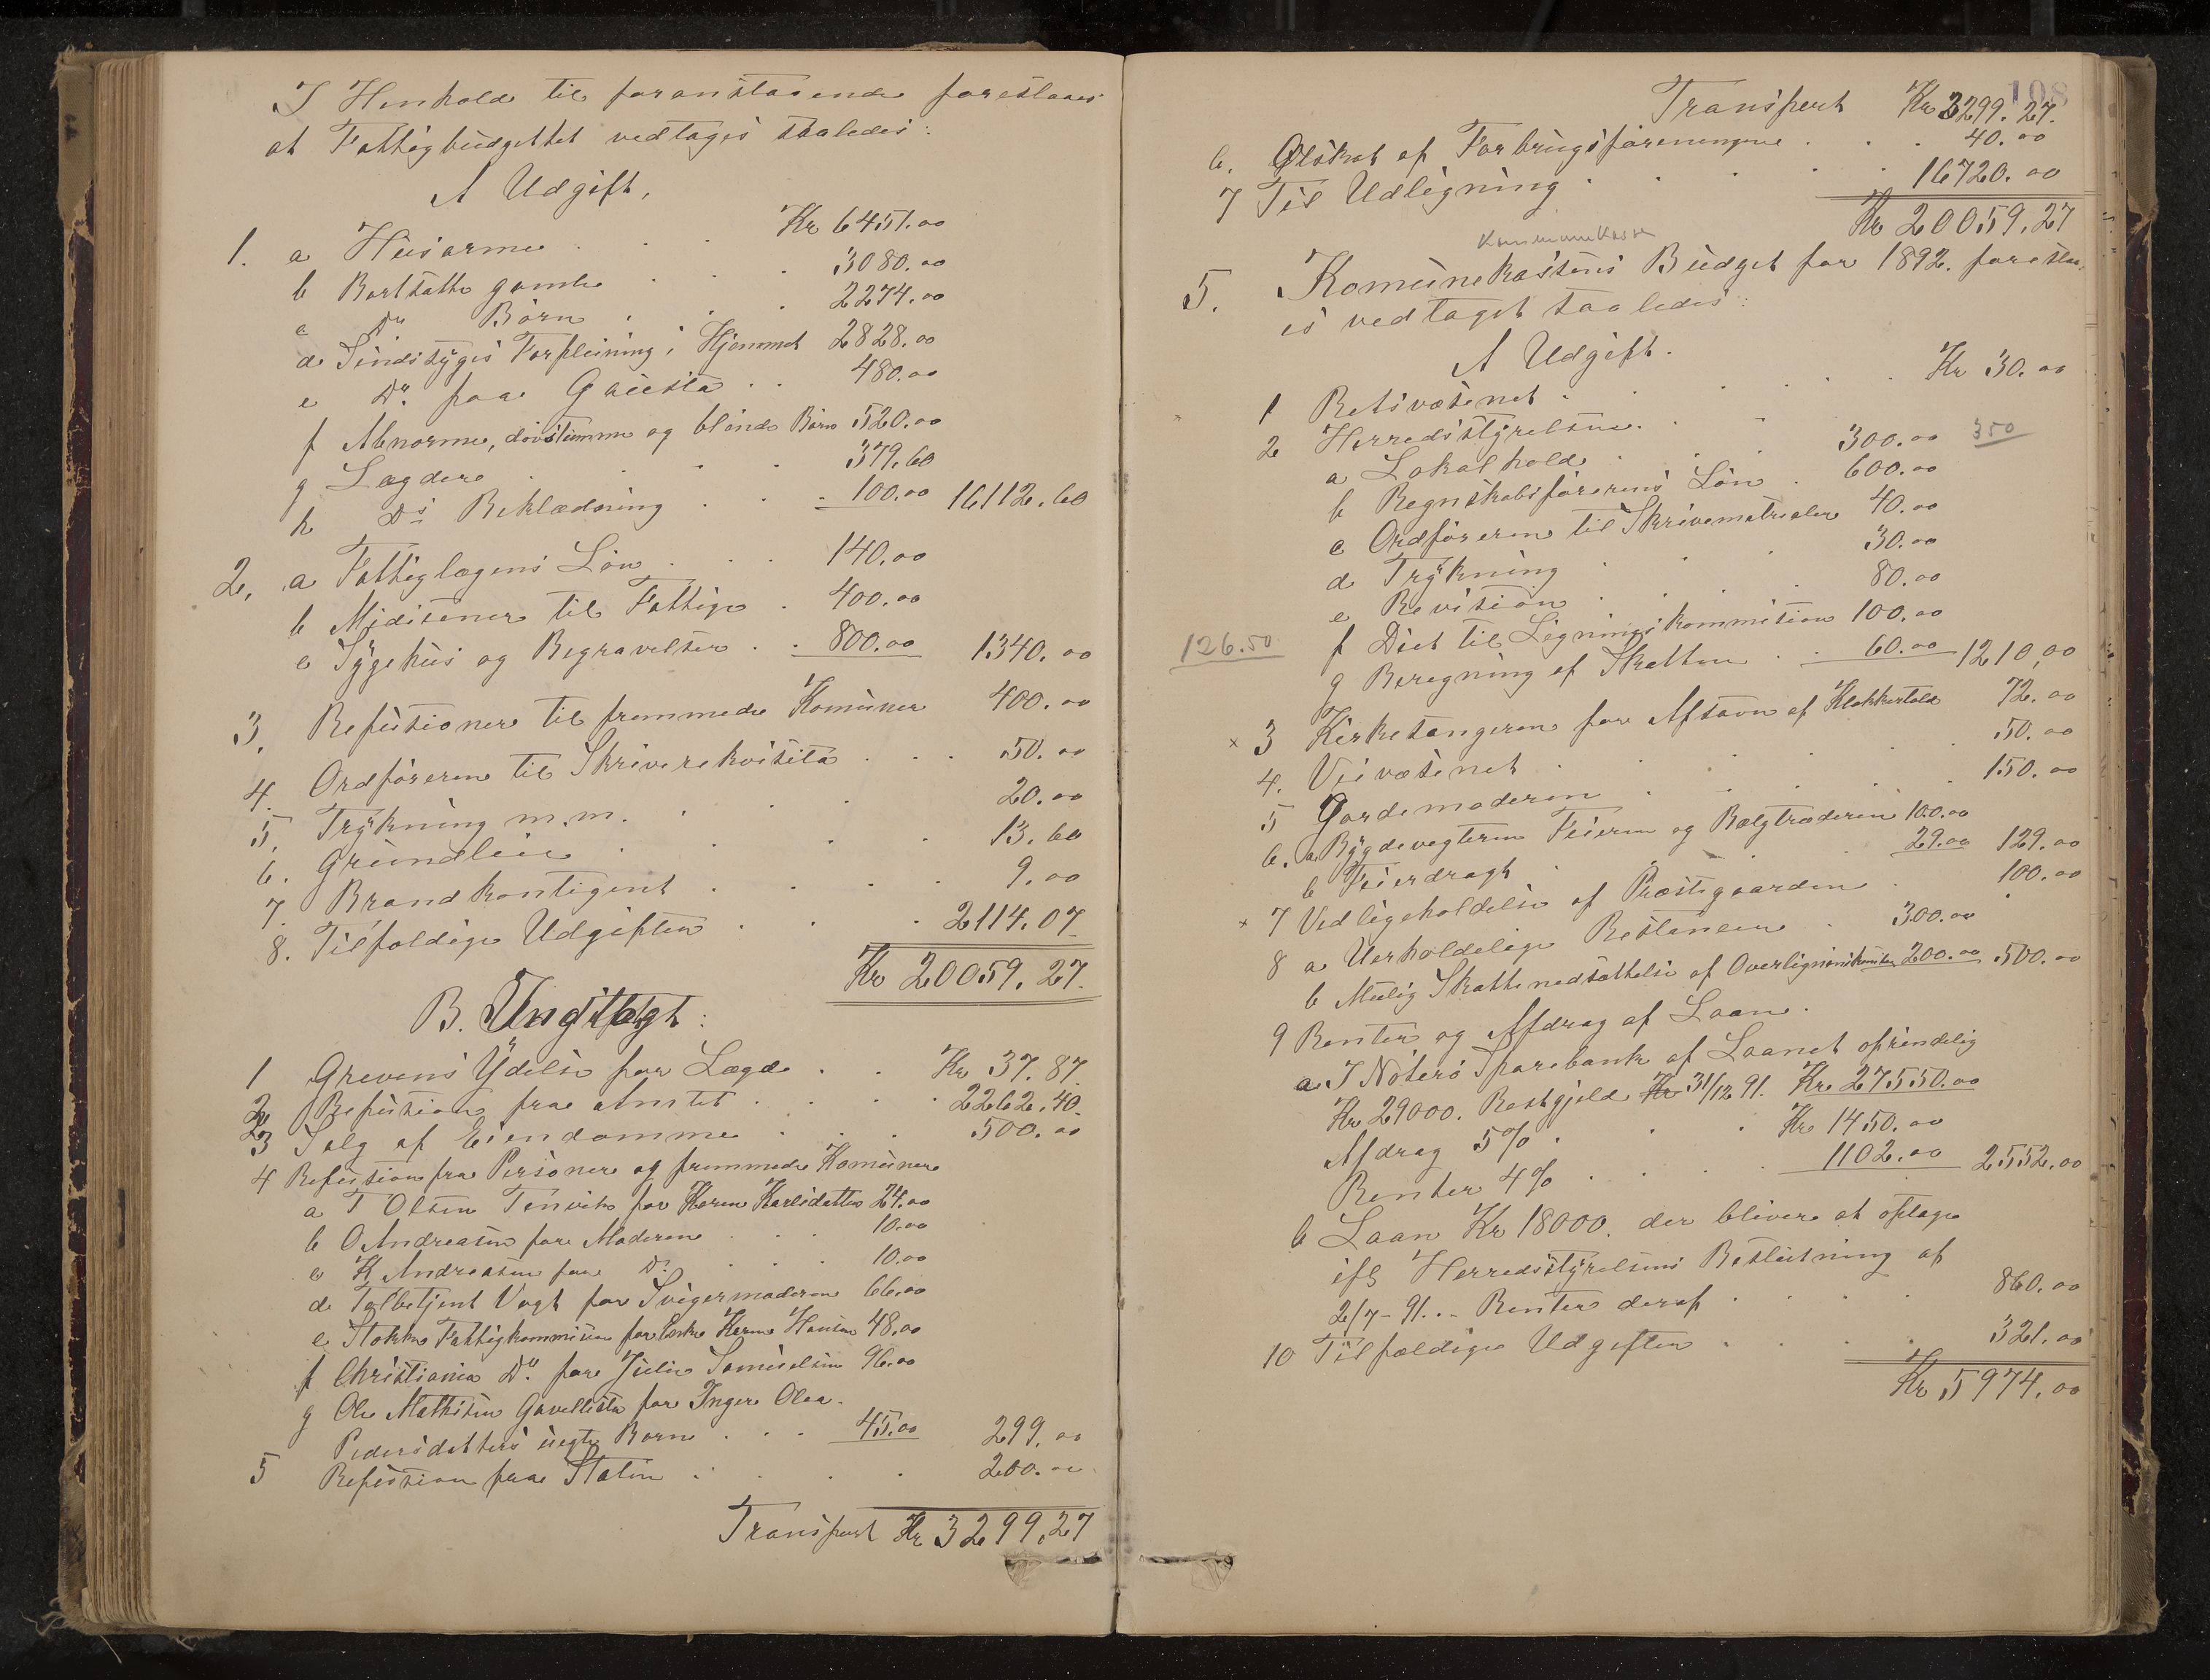 I Henhold til foranstaaende foreslaaes
at Fattigbudgettet vedtages saaledes:
A Udgift.
1. a Husarme . . . Kr 6451.00
b Bortsatte gamle . . . 3080.00
c Do Børn . . . 2274.00
d Sindssyges Forpleining i Hjemmet 2828.00
e Do. paa Gausta . . 480.00
f Abnorme, døvstumme og blinde Børn 520.00
g Lægdere . . . 379.60
h Ds Beklædning . . . 100.00 16112.60
2. a Fattiglægens Løn . . . 140.00
b Midisener til Fattige . 400.00
c Sygehus og Begravelser . . 800.00 1340.00
3. Refusioner til fremmede Komuner 400.00
4. Ordføreren til Skriverekvisita . . . 50.00
5. Trykning m.m. . . . 20.00
6. Grundleie . . . . 13.60
7. Brandkontigent . . . . 9.00
8. Tilfældige Udgifter . . . 2114.07
Kr 20059.27.
B. Indtægt:
1 Grevens Ydelse for Lægd . . Kr 37.87.
2 Refusion fra Amtet . . . . 2262.40.
3 Salg af Eiendomme . . . 500.00
4 Refusion fra Personer og fremmede Komuner
a T Olsen Tenvik for Karen Karlsdatter 24.00
b O Andreasen for Moderen . . . 10.00
c K Andreasen for Do. . . . 10.00
d Tolbetjent Vogt for Svigermoderen 66.00
e Stokke Fattigkommision for Enke Karen Hansen 48.00
f Christiania Do. for Julie Samuelsen 96.00
g Ole Mathisen Gavellista for Inger Olea
Pedersdatters uegte Barn . . . 45.00 299.00
5 Refusion fra Staten . . . 200.00
Transport Kr 3299.27
108
Transport Kr 3299.27.
6. Ølskat af Forbrugsforeningene . . . 40.00
7 Til Udligning . . . . 16720.00
Kr 20059.27
Kommunekasse
5. Komunekassens Budget for 1892. foreslaa-
es vedtaget saaledes:
A Udgift.
1 Retsvæsenet . . . . . Kr 30.00
2 Herredsstyrelsen. . .
a Lokalhold . . . 300.00 350
b Regnskabsførerens Løn . 600.00
c Ordføreren til Skrivematrialer 40.00
d Trykning . . 30.00
e Revision . . . 80.00
126.50 f Diet til Ligningskommision 100.00
g Beregning af Skatten . . 60.00 1210.00
x 3 Kirkesangeren for Afsavn af Klokkertold 72.00
4. Veivæsenet . . . . 50.00
5 Jordemoderen . . . . 150.00
6. a Bygdevegteren Feieren og Bælgtræderen 100.00
b Feierdragt . . . 29.00 129.00
x 7 Vedligeholdelse af Præstegaarden . . 100.00
8 a Uerholdelige Restancer . 300.00
b Mulig Skattenedsættelse af Overligningskomiten 200.00 500.00
9 Renter og Afdrag af Laan.
a I Nøterø Sparebank af Laanet oprindelig
Kr 29000. Restgjeld Kr 31/12 91. Kr 27550.00
Afdrag 5% . . . Kr 1450.00
Renter 4% . . . . 1102.00 2552.00
b Laan Kr 18000. der bliver at optage
ifl Herredsstyrelsens Beslutning af
2/7-91... Renter deraf . . . . 860.00
10 Tilfældige Udgifter . . . 321.00
Kr 5974.00